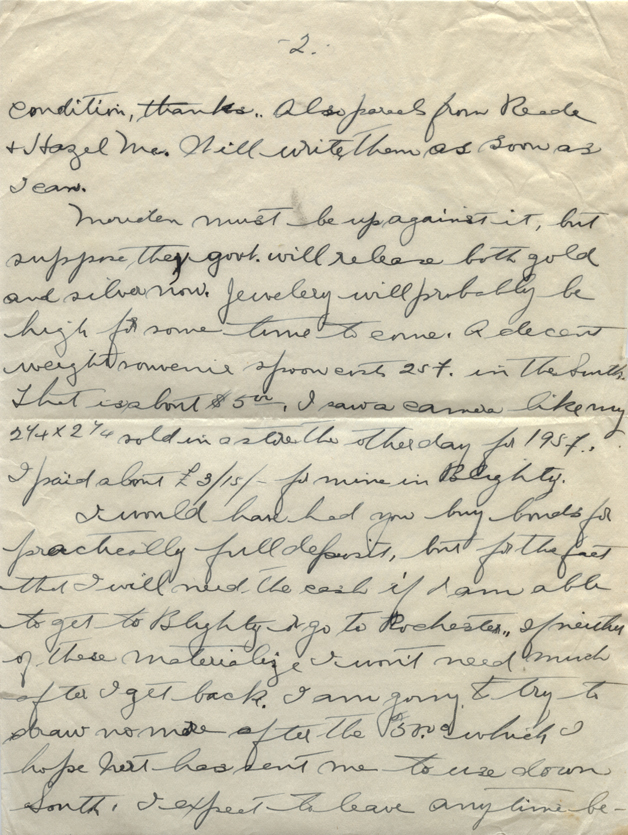 -2.
condition, thanks.. Also parcels from Reade
+ Hazel Mc. Will write them as soon as
I can.
Meriden must be up against it, but
suppose they govt. will release both gold
and silver now. Jewelery will probably be
high for some time to come. A decent
weight souvenir spoon costs 25f. in the South.
That is about $5.00. I saw a camera like my
2¼ x 2¼ sold in a store the other day for 195f..
I paid about £3/15/- for mine in Blighty.
I would have had you buy bonds for
practically full deposit, but for the fact
that I will need the cash if I am able
to get to Blighty or go to Rochester., If neither
of these materialize I won't need much
after I get back. I am going to try to
draw no more after the which I
hope has sent me to use down
South. I expect to leave anytime be-